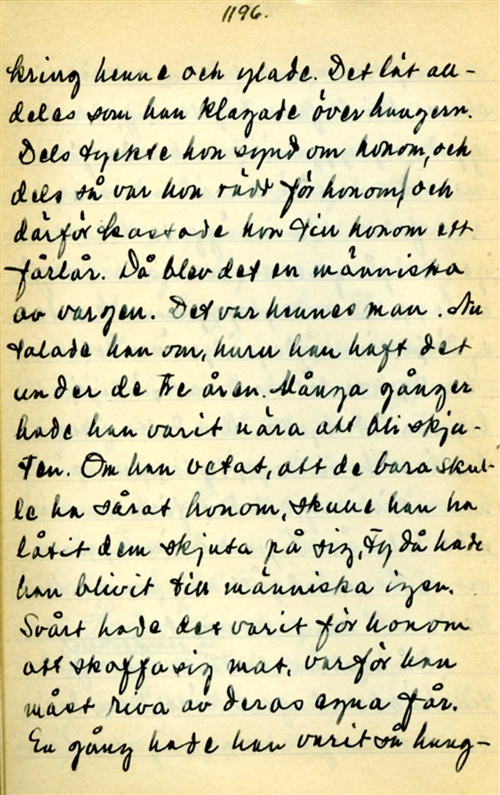 1196.
kring henne och ylade. Det lät all-
deles som han klagade över hungern.
Dels tyckte hon synd om honom, och
dels så var hon rädd för honom, och
därför kastade hon till honom ett
fårlår. Då blev det en människa
av vargen. Det var hennes man. Nu
talade han om, huru han haft det
under de tre åren. Många gånger
hade han varit nära att bli skju-
ten. Om han vetat, att de bara skul-
le ha sårat honom, skulle han ha
låtit dem skjuta på sig, ty då hade
han blivit till människa igen.
Svårt hade det varit för honom
att skaffa sig mat, varför han
måst riva av deras egna får.
En gång hade han varit så hung-